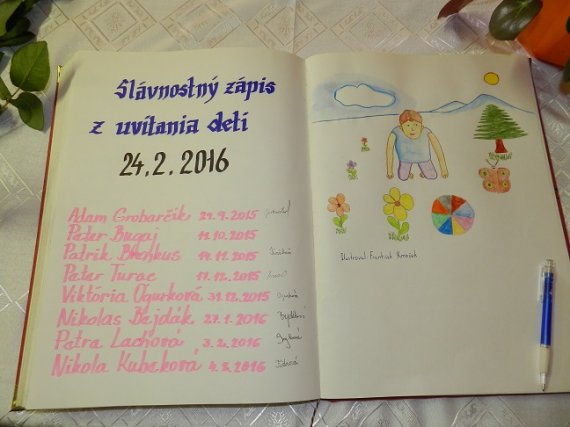 Slávnostný zápis
z uvítania detí
24.2.2016
Adam Grobarčík 29.9.2015
Peter Bugaj 11.10.2015
Patrik 14.11.2015
Peter Turac 17.12.2015
Viktória Ogurková 31.12.2015
Nikolas Bajdák 27.1.2016
Petra Lachová 3.2.2016
Nikola Kubeková 4.2.2016
Ilustroval: František